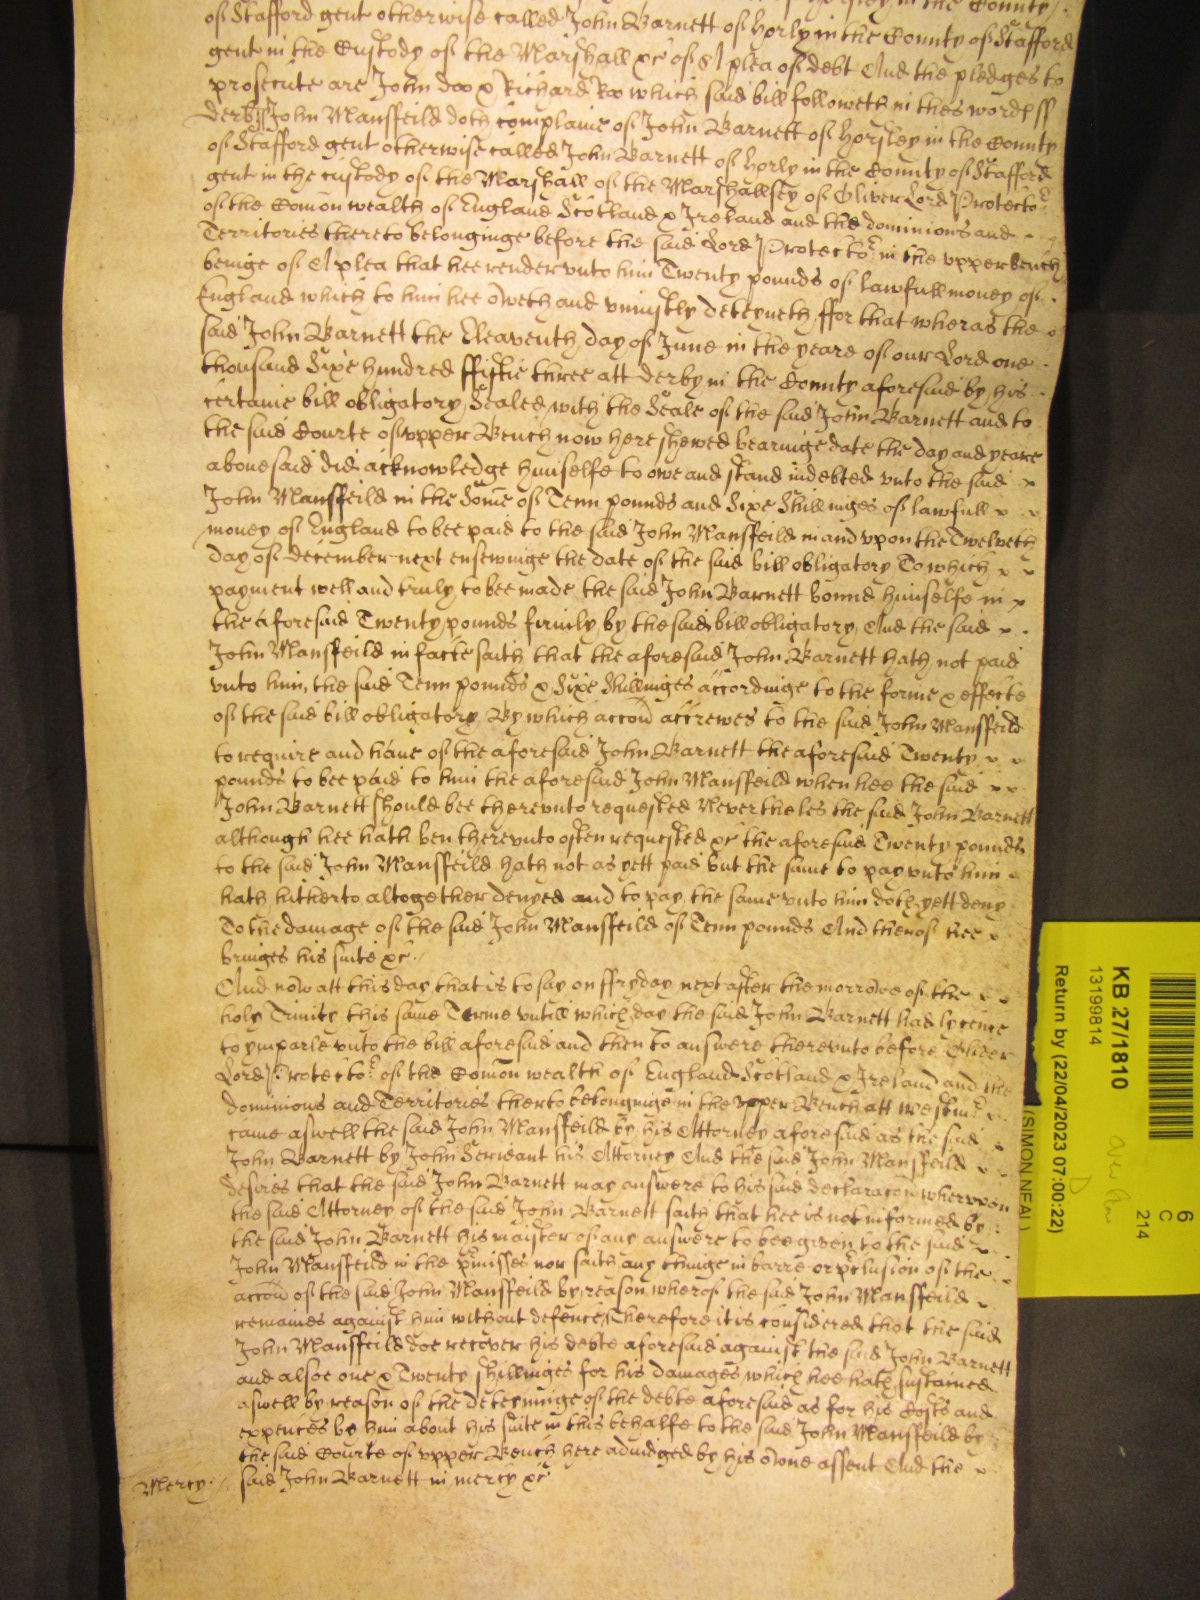 of Horsley in the County
of Stafford gent otherwise called John Barnett of Horly in the County of Stafford
gent in the Custody of the Marshall &c of A plea of debt And the pledges to
prosecute are John Doo & Richard Roo which said bill followeth in thes words ss
Derby ss John Mansfeild doth complaine of John Barnett of Horsley in the County
of Stafford gent otherwise called John Barnett of Horly in the County of Stafford
gent in the custody of the Marshall of the Marshallsey of Oliver Lord Protector
of the Comon wealth of England Scotland & Ireland and the dominions and
Territories thereto belonginge before the said Lord Protector in the upper bench
beinge of A plea that hee render unto him Twenty pounds of lawfull money of
England which to him hee oweth and uniustly deteyneth, ffor that wheras the
said John Barnett the Eleaventh day of June in the yeare of our Lord one
thousand Sixe hundred ffiftie three att Derby in the County aforesaid by his
certaine bill obligatory Sealed with the Seale of the said John Barnett and to
the said Courte of upper Bench now here shewed bearinge date the day and yeare
abovesaid did acknowledge himselfe to owe and stand indebted unto the said
John Mansfeild in the Some of Tenn pounds and Sixe Shillinges of lawfull
money of England to bee paid to the said John Mansfeild in and upon the Twelveth
day of December next ensewinge the date of the said bill obligatory To which
payment well and truly to bee made the said John Barnett bound himselfe in
the aforesaid Twenty pounds firmly by the said bill obligatory, And the said
John Mansfeild in facte saith that the aforesaid John Barnett hath not paid
unto him, the said Tenn pounds & Sixe Shillinges accordinge to the forme & effecte
of the said bill obligatory By which accon accrewes to the said John Mansfeild
to require and have of the aforesaid John Barnett the aforesaid Twenty
pounds to bee paid to him the aforesaid John Mansfeild when hee the said
John Barnett should bee thereunto requested Neverthelès the said John Barnett
although hee hath ben thereunto often requested &c the aforesaid Twenty pounds
to the said John Mansfeild hath not as yett paid but the same to pay unto him
hath hitherto altogether denyed and to pay the same unto him doth yett deny
To the damage of the said John Mansfeild of Tenn pounds And therof hee
bringes his suite &c
And now att this day that is to say on ffryday next after the morrowe of the
holy Trinity this same Terme untill which day the said John Barnett had lycence
to ymparle unto the bill aforesaid and then to answere thereunto before Oliver
Lord Protector of the Comon wealth of England Scotland & Ireland and the
dominions and Territories therto belonginge in the upper Bench att Westmr
came aswell the said John Mansfeild by his Attorney aforesaid as the said
John Barnett by John Serieant his Attorney And the said John Mansfeild
desires that the said John Barnett may answere to his said declaracon wherupon
the said Attorney of the said John Barnett saith that hee is not informed by
the said John Barnett his maister of any answere to bee given to the said
John Mansfeild in the pmisses nor saith any thinge in barre or pclusion of the
accon of the said John Mansfeild by reason wherof the said John Mansfeild
remaines against him without defence, Therefore it is considered that the said
John Mansfeild doe recover his debte aforesaid against the said John Barnett
and alsoe one & Twenty shillinges for his damages which hee hath sustained
aswell by reason of the deteyninge of the debte aforesaid as for his Costs and
expences by him about his suite in this behalfe to the said John Mansfeild by
the said Courte of upper Bench here adiudged by his owne assent And the
Mercy said John Barnett in mercy &c
6
C
214
KB 27/1810
13199814
Return by (22/04/2023 07:00:22)
(SIMON NEAL)